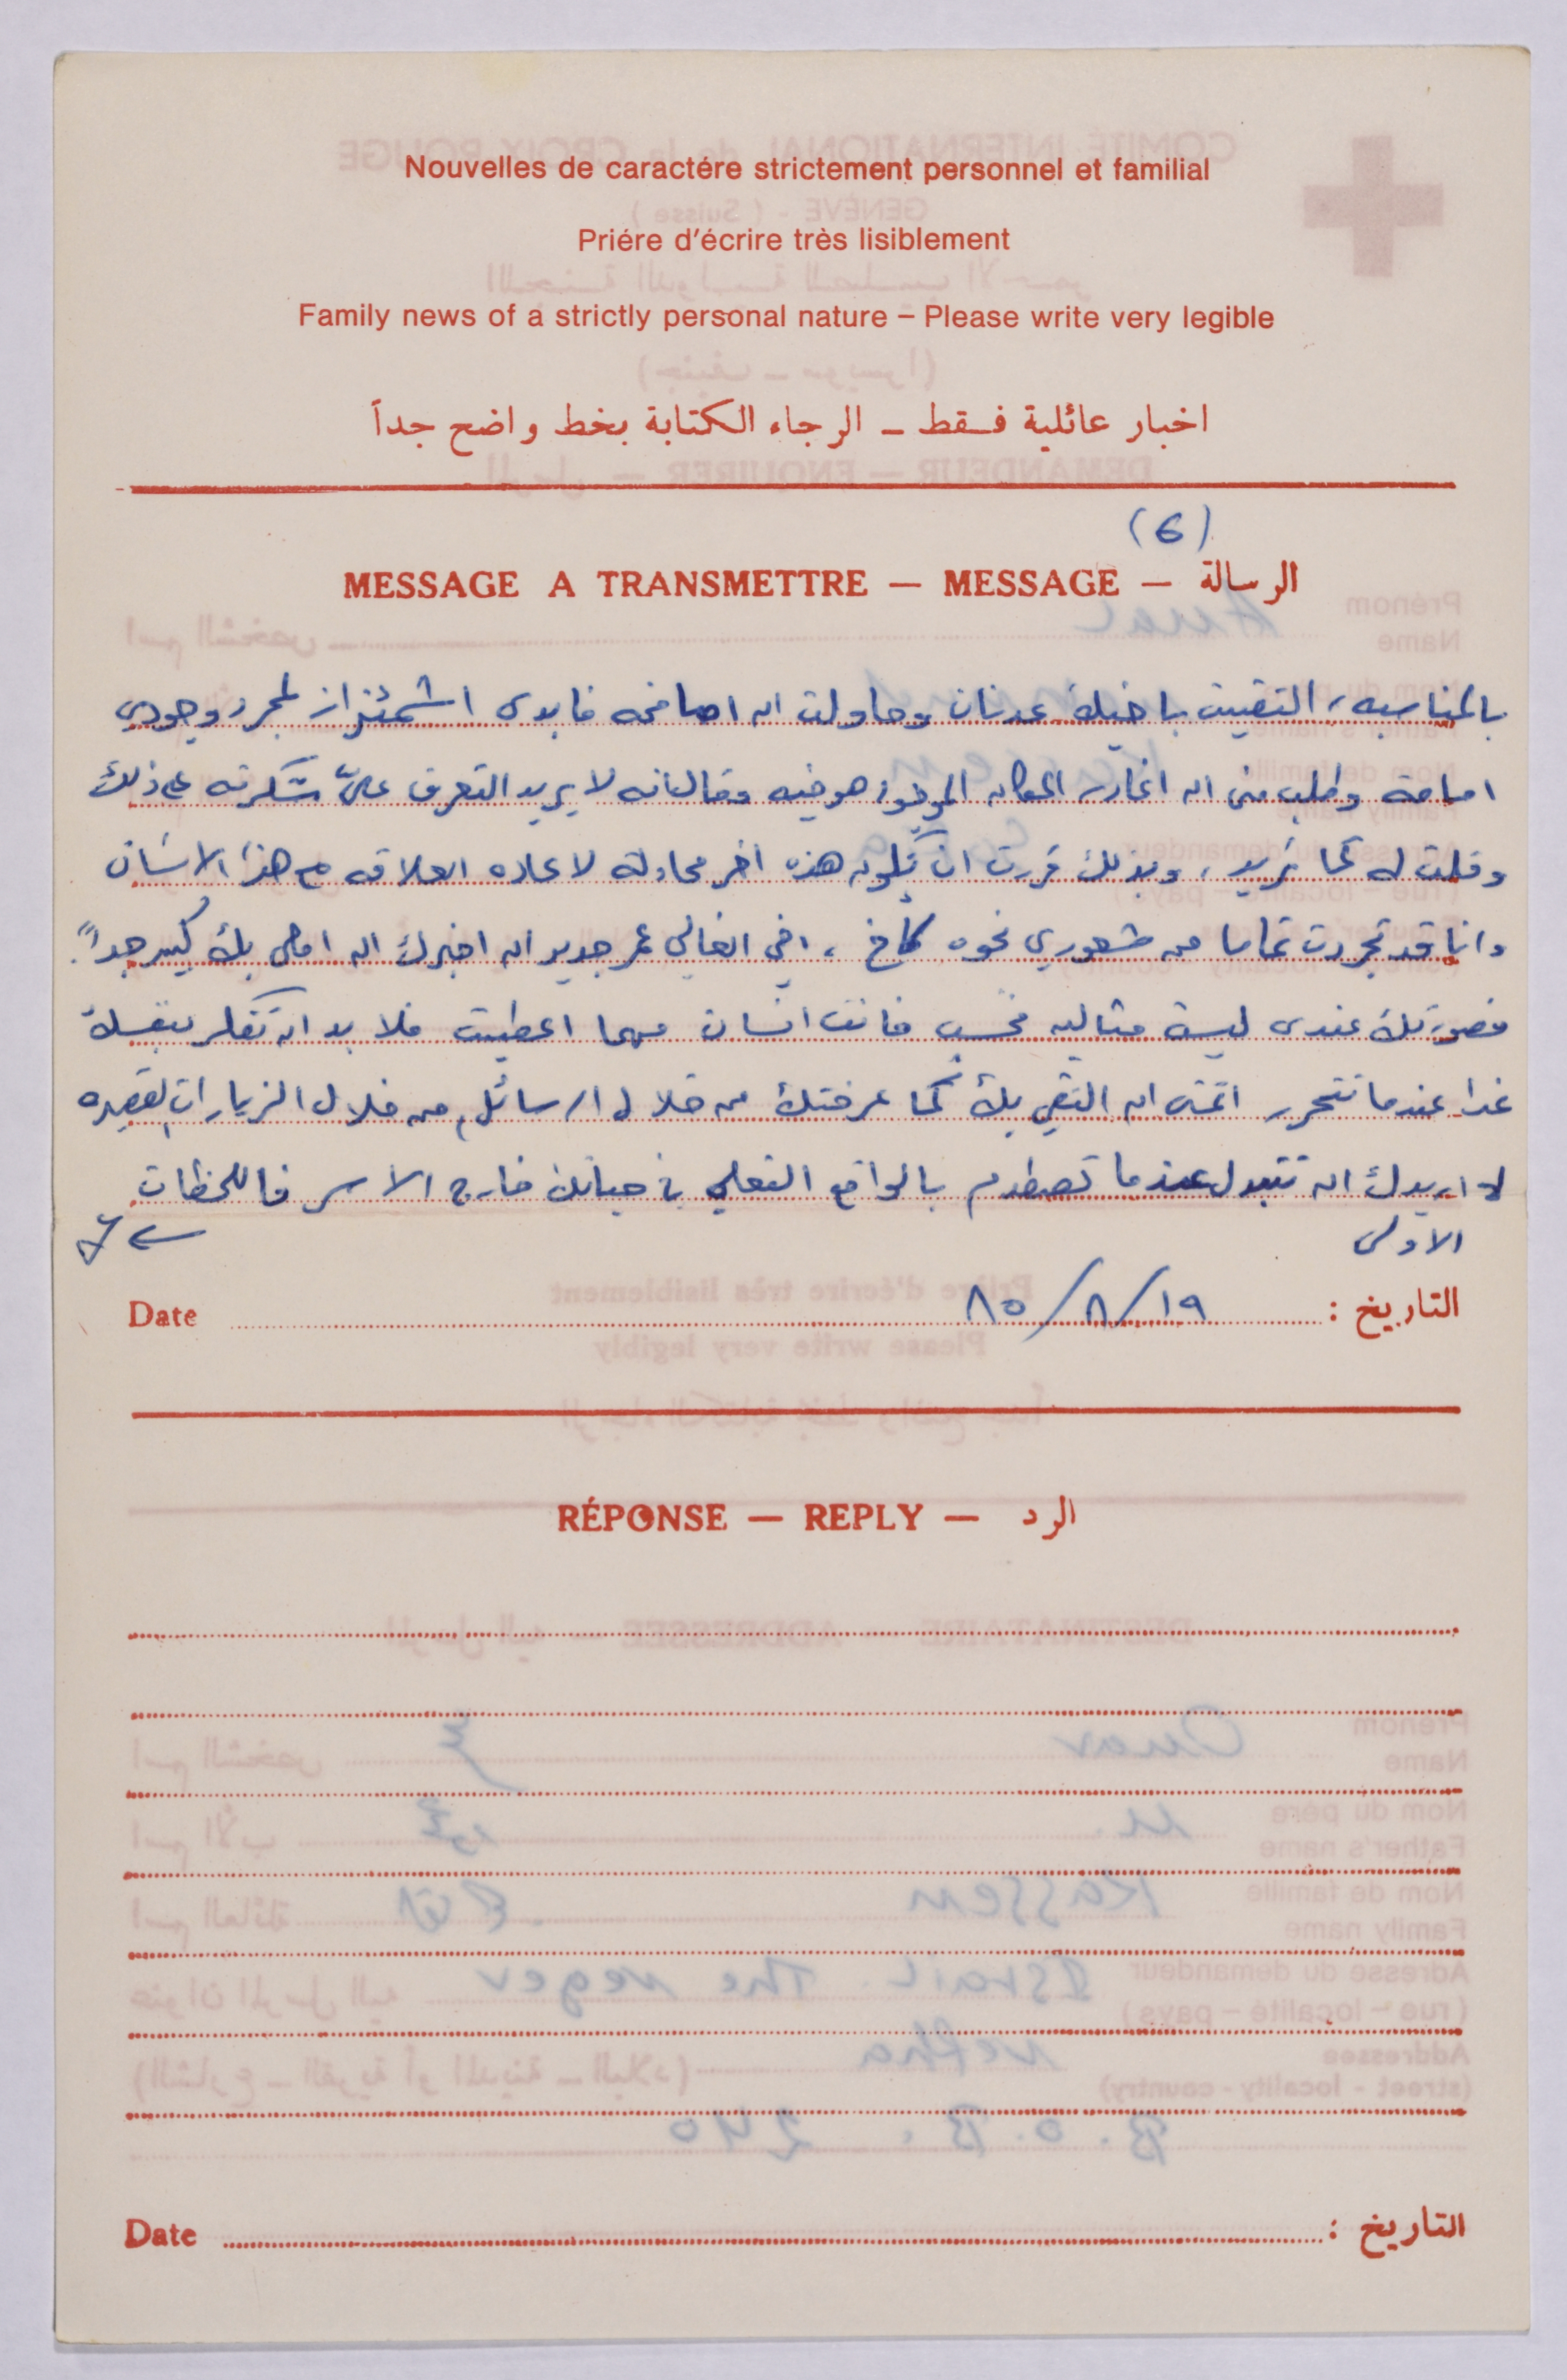 Nouvelles de caractére strictement personnel et familial
Priére d'écrire très lisiblement
Family news of a strictly personal nature – Please write very legible
اخبار عائلية فقط – الرجاء الكتابة بخط واضح جداً
(6)
MESSAGE A TRANSMETTRE — MESSAGE — الرسالة
بالمناسبه، التقيت باخيك عدنان وحاولت ان اصافحه فابدى اشمئزاز لمجرد وجودي
امامه وطلب مني ان اغادر المكان الموجود هو فيه وقال انه لا يريد التعرف عليّ شكرته على ذلك
وقلت له كما تريد، وبذلك قررت ان تكون هذه اخر محاولة لاعاده العلاقه مع هذا الانسان
وانا قد تجردت تماما من شعوري نحوه كأخ، اخي الغالي عمر جدير ان اخبرك ان املي بك كبير جداً.
فصورتك عندى ليست مثاليه فحسب فانت انسان مهما اعطيت فلا بد ان تفكر بنفسك
غدا عندما تتحرر اتمنى ان التقي بك كما عرفتك من خلال الرسائل، من خلال الزيارات القصيره
لا اريدك ان تتبدل عندما تصطدم بالواقع الفعلي في حياتك خارج الاسر فاللحظات
الاولى
التاريخ : ١٩/٨/٨٥ Date
RÉPONSE — REPLY — الرد
التاريخ : Date